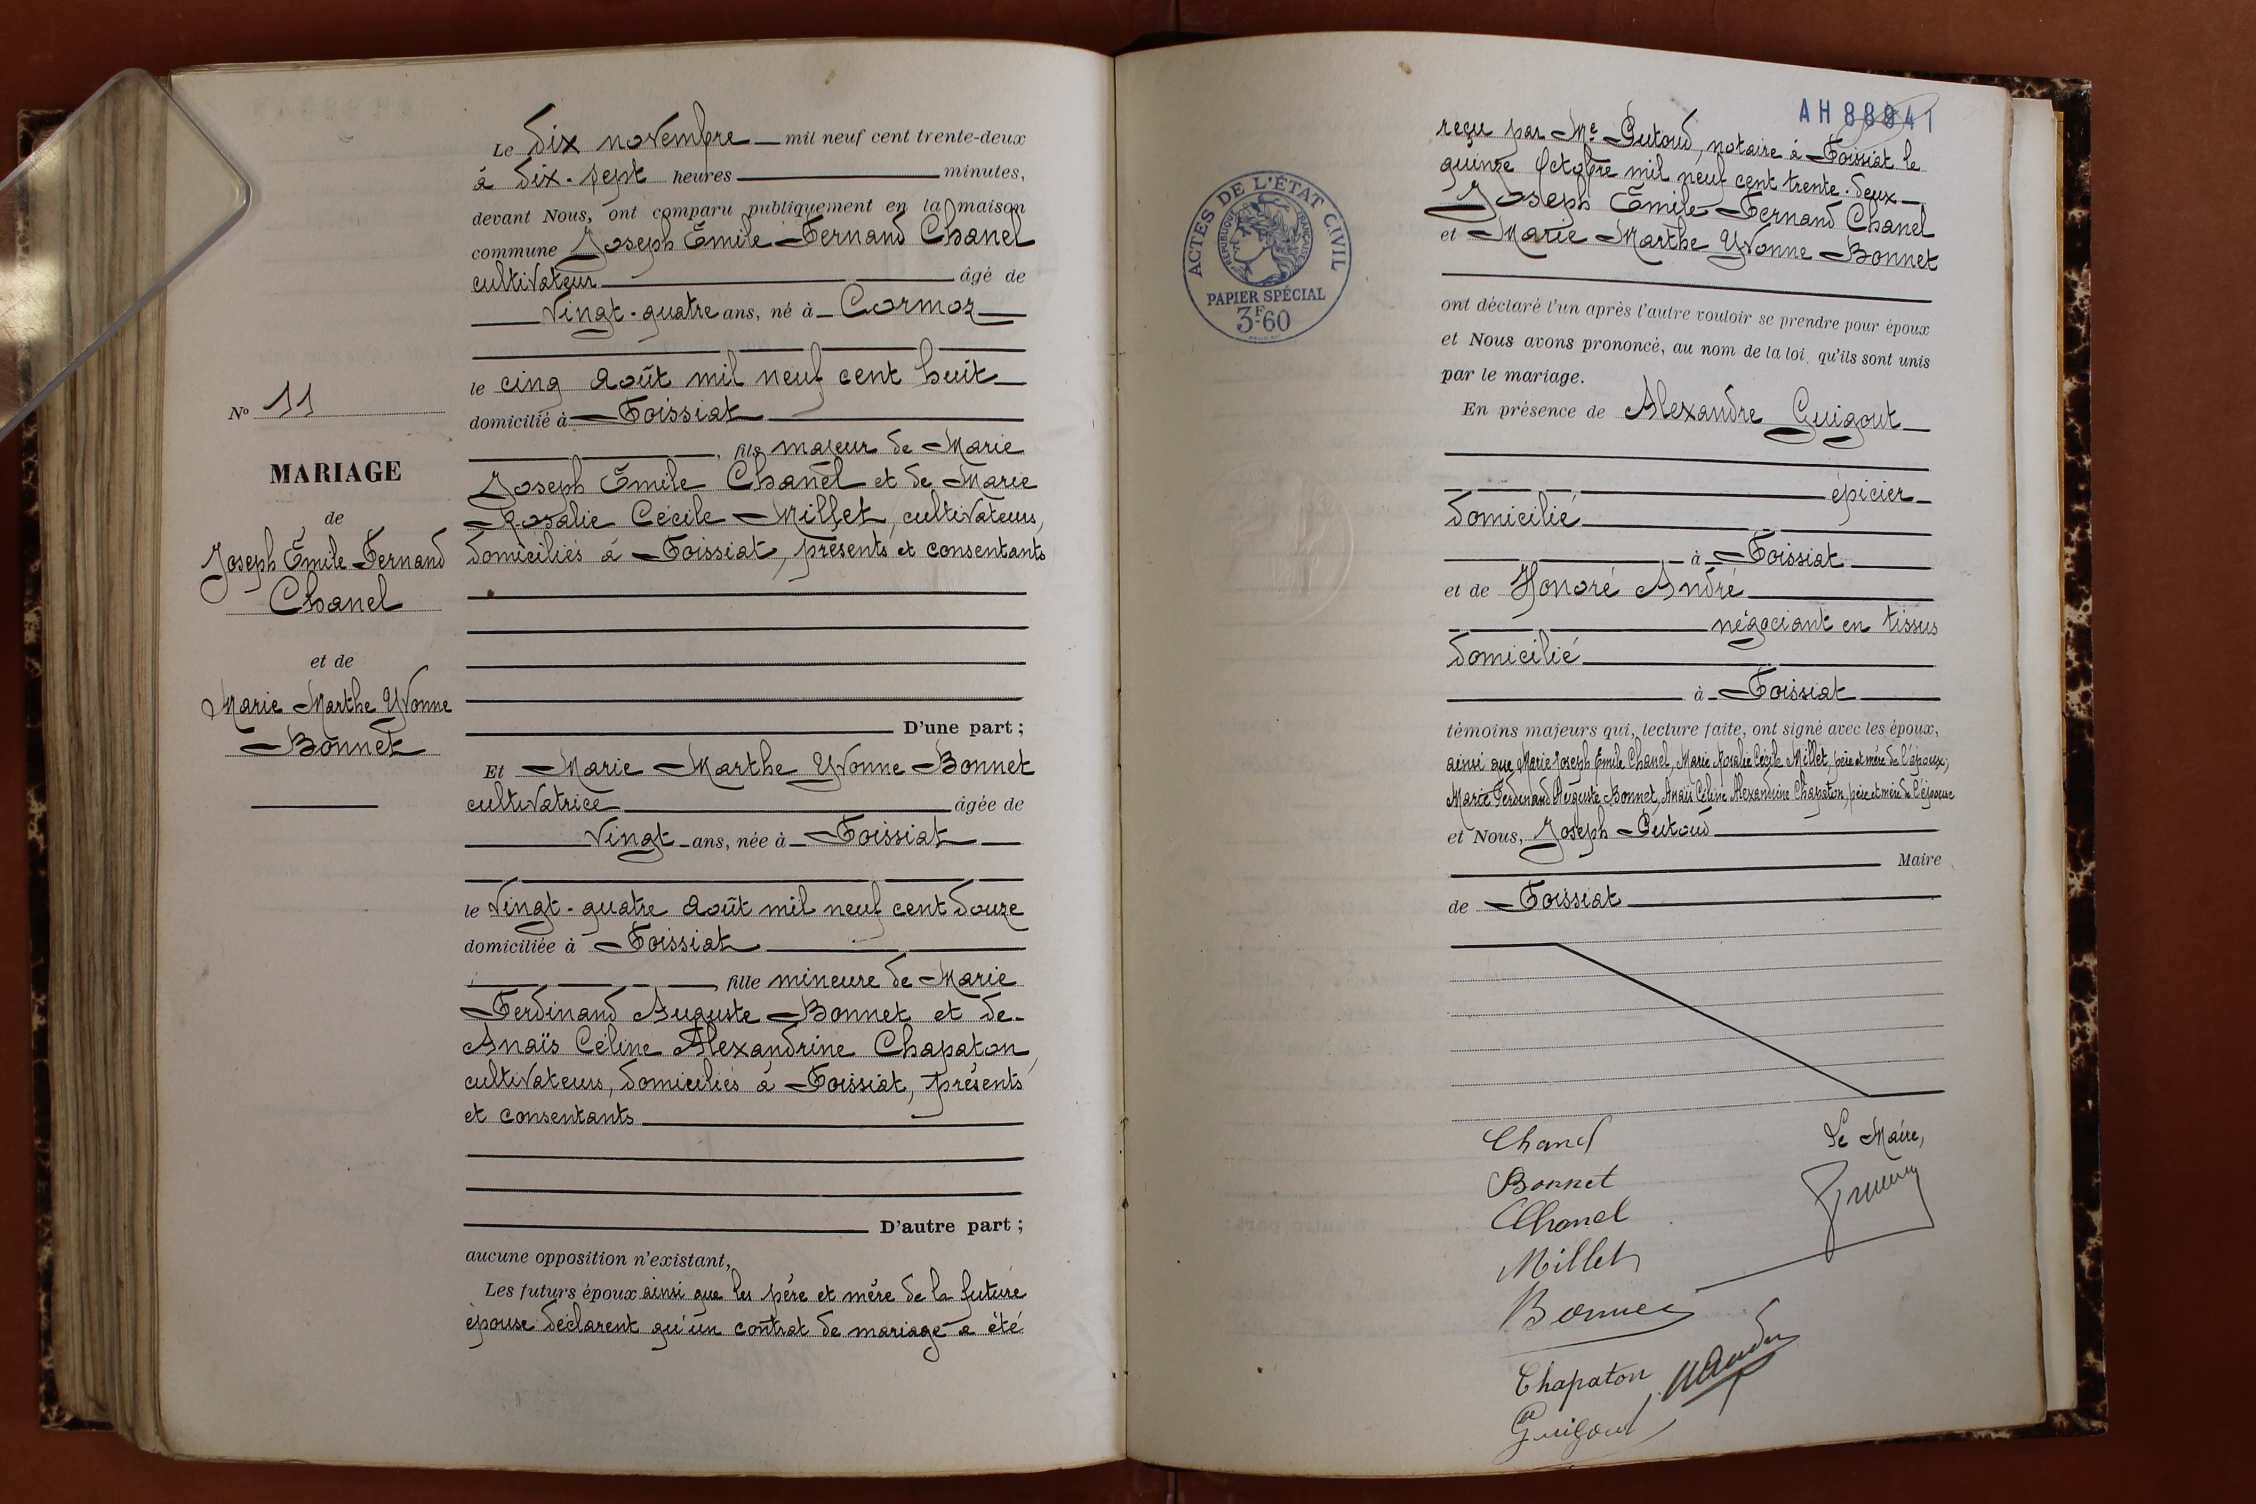 Le dix novembre mil neuf cent trente-deux
à dix-sept heures minutes,
devant Nous, ont comparu publiquement en la maison
commune Joseph Emile Fernand Chanel
cultivateur âgé de
vingt-quatre ans, né à Cormoz
le cinq Août mil neuf cent huit
domicilié à Foissiat
, fils majeur de Marie
Joseph Emile Chanel et de Marie
Rosalie Cécile Millet, cultivateurs,
domiciliés à Foissiat, présents et consentants
D'une part ;
Et Marie Marthe Yvonne Bonnet
cultivatrice âgée de
vingt ans, née à Foissiat
le vingt-quatre Août mil neuf cent douze
domiciliée à Foissiat
, fille mineure de Marie
Ferdinand Auguste Bonnet et de
Anaïs Céline Alexandrine Chapaton,
cultivateurs, domiciliés à Foissiat, présents
et consentants
D'autre part ;
aucune opposition n'existant,
Les futurs époux ainsi que les père et mère de la future
épouse déclarent qu'un contrat de mariage a été
No 11
MARIAGE
de
Joseph Emile Fernand
Chanel
et de
Marie Marthe Yvonne
Bonnet
AH 88841
ACTES DE L'ÉTAT CIVIL
RÉPUBLIQUE FRANÇAISE
PAPIER SPÉCIAL
3F60
reçu par Me Putoud, notaire à Foissiat le
quinze Octobre mil neuf cent trente-deux
Joseph Emile Fernand Chanel
et Marie Marthe Yvonne Bonnet
ont déclaré l'un après l'autre vouloir se prendre pour époux
et Nous avons prononcé, au nom de la loi, qu'ils sont unis
par le mariage.
En présence de Alexandre Guigout
épicier
domicilié
à Foissiat
et de Honoré André
négociant en tissus
domicilié
à Foissiat
témoins majeurs qui, lecture faite, ont signé avec les époux,
ainsi que Marie Joseph Emile Chanel, Marie Rosalie Cécile Millet, père et mère de l'époux;
Marie Ferdinand Auguste Bonnet, Anaïs Céline Alexandrine Chapaton, père et mère de l'épouse
et Nous, Joseph Putoud
Maire
de Foissiat
Chanel
Le Maire,
Bonnet
Chanel
Millet
Bonnet
Chapaton
Guigout